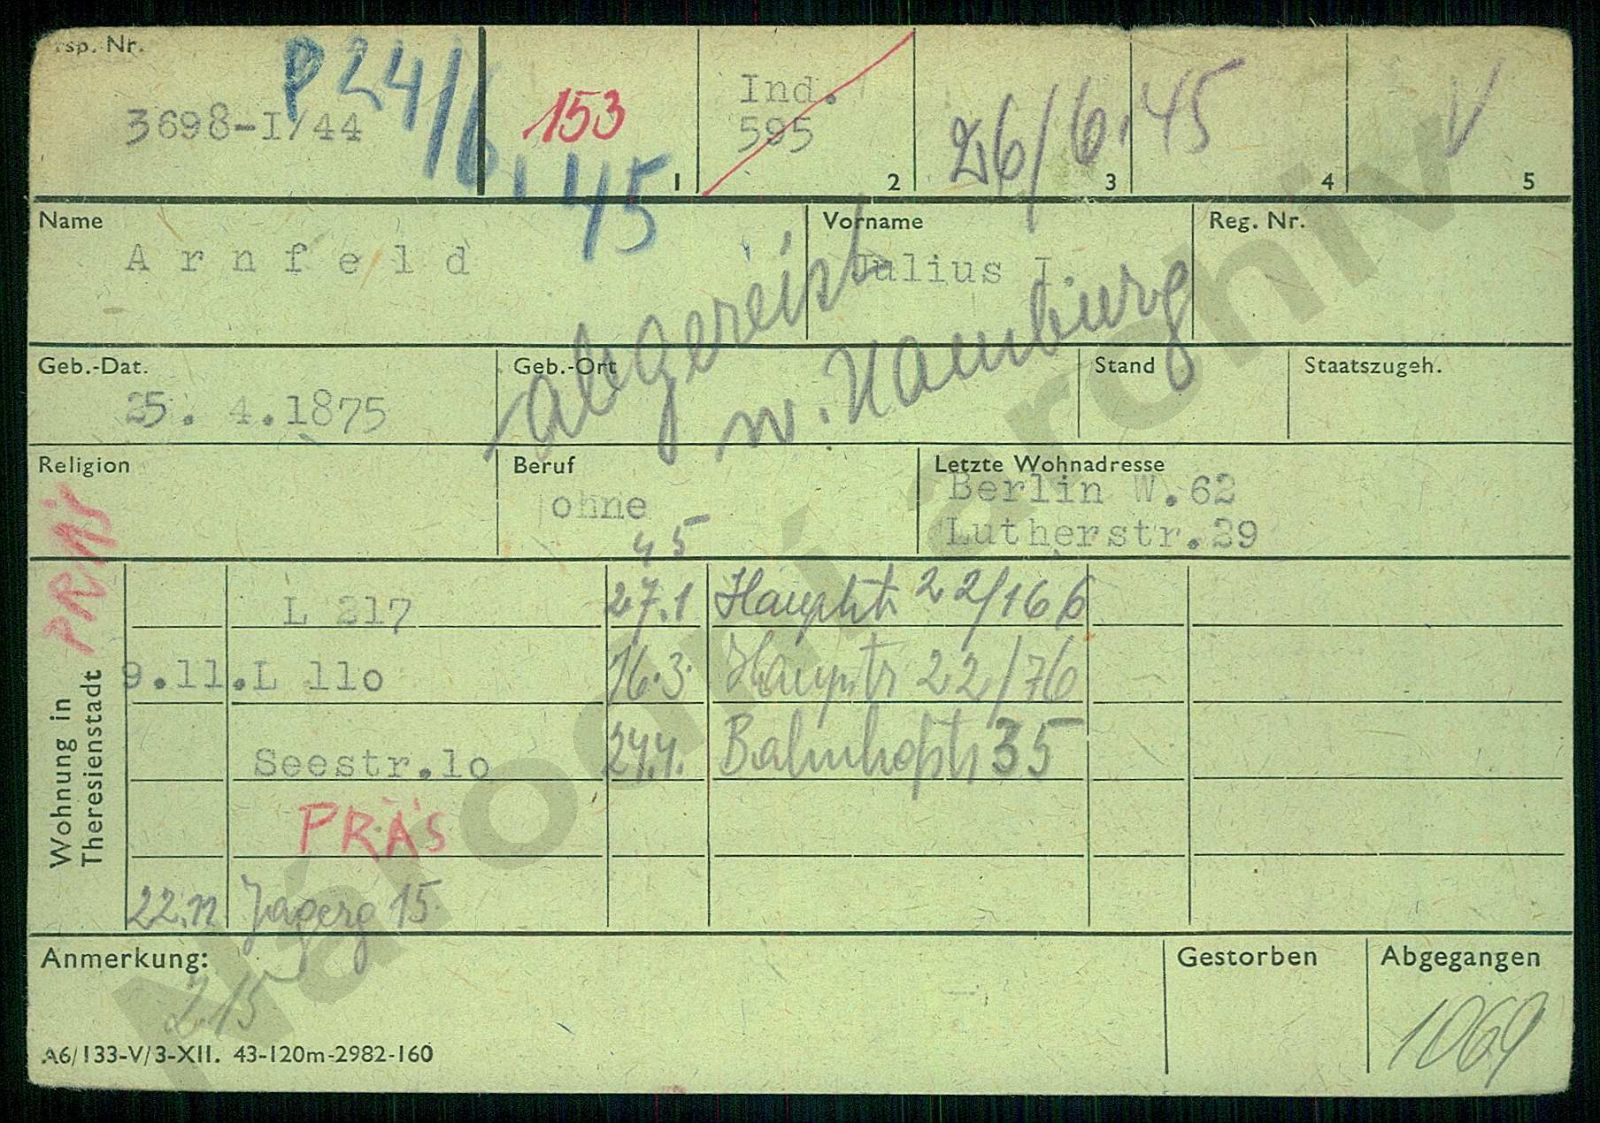 sp. Nr.
3698-I/44
P 24/6.45
153
1
Ind.
595
2
26/6.45
3
4
V
5
Name
Arnfeld
Vorname
Julius I.
Reg. Nr.
abgereist
n. Hamburg
Geb.-Dat.
25. 4.1875
Geb.-Ort
Stand
Staatszugeh.
Religion
Beruf
ohne
Letzte Wohnadresse
Berlin W.62
Lutherstr.29
PRÄS
Wohnung in
Theresienstadt
45
L 217
27.1 Hauptstr 22/166
9.11.L 11o
16.3. Hauptstr 22/76
Seestr.1o
24.4. Bahnhofstr 35
PRÄS
22.11 Jägerg 15
Anmerkung:
Z 15
Gestorben
Abgegangen
1069
A6/133-V/3-XII. 43-120m-2982-160
Národní archiv